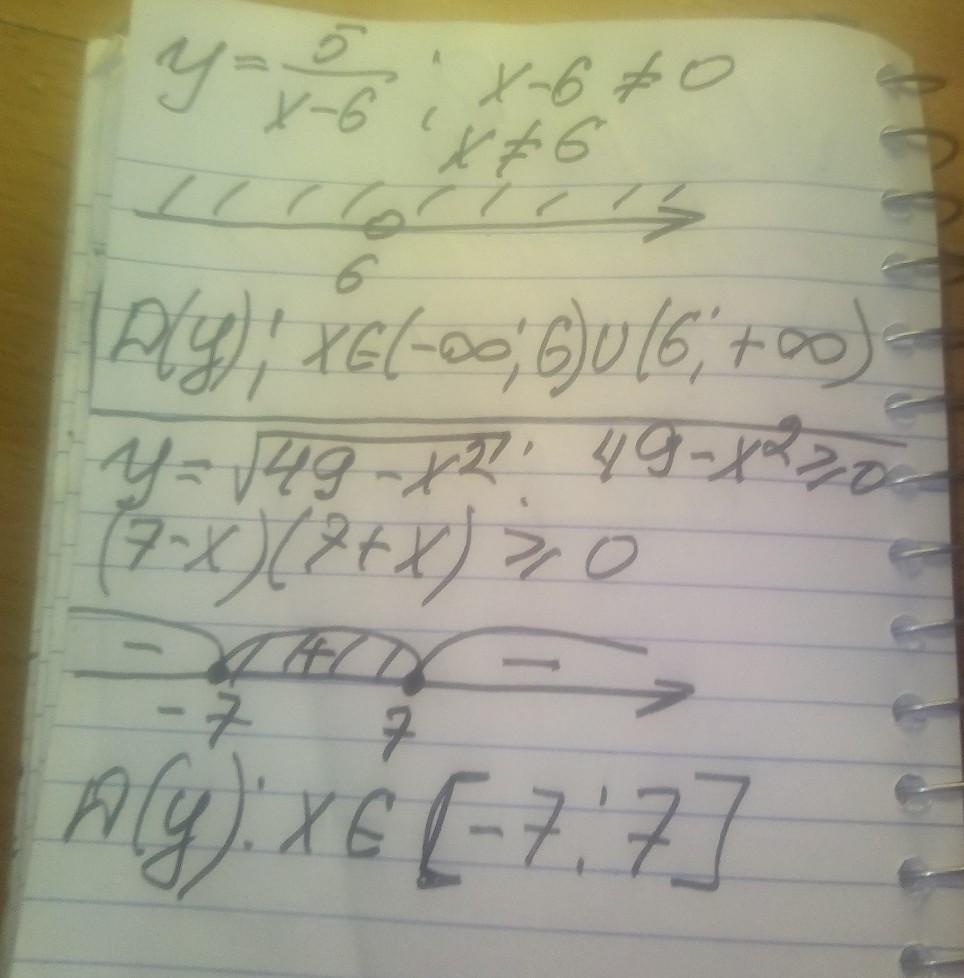 y = 5/(x-6) ; x-6 ≠ 0
x ≠ 6
6
D(y): x∈(-∞;6)∪(6;+∞)
y = √(49-x²) ; 49-x² ≥ 0
(7-x)(7+x) ≥ 0
- + -
-7 7
D(y): x∈[-7;7]